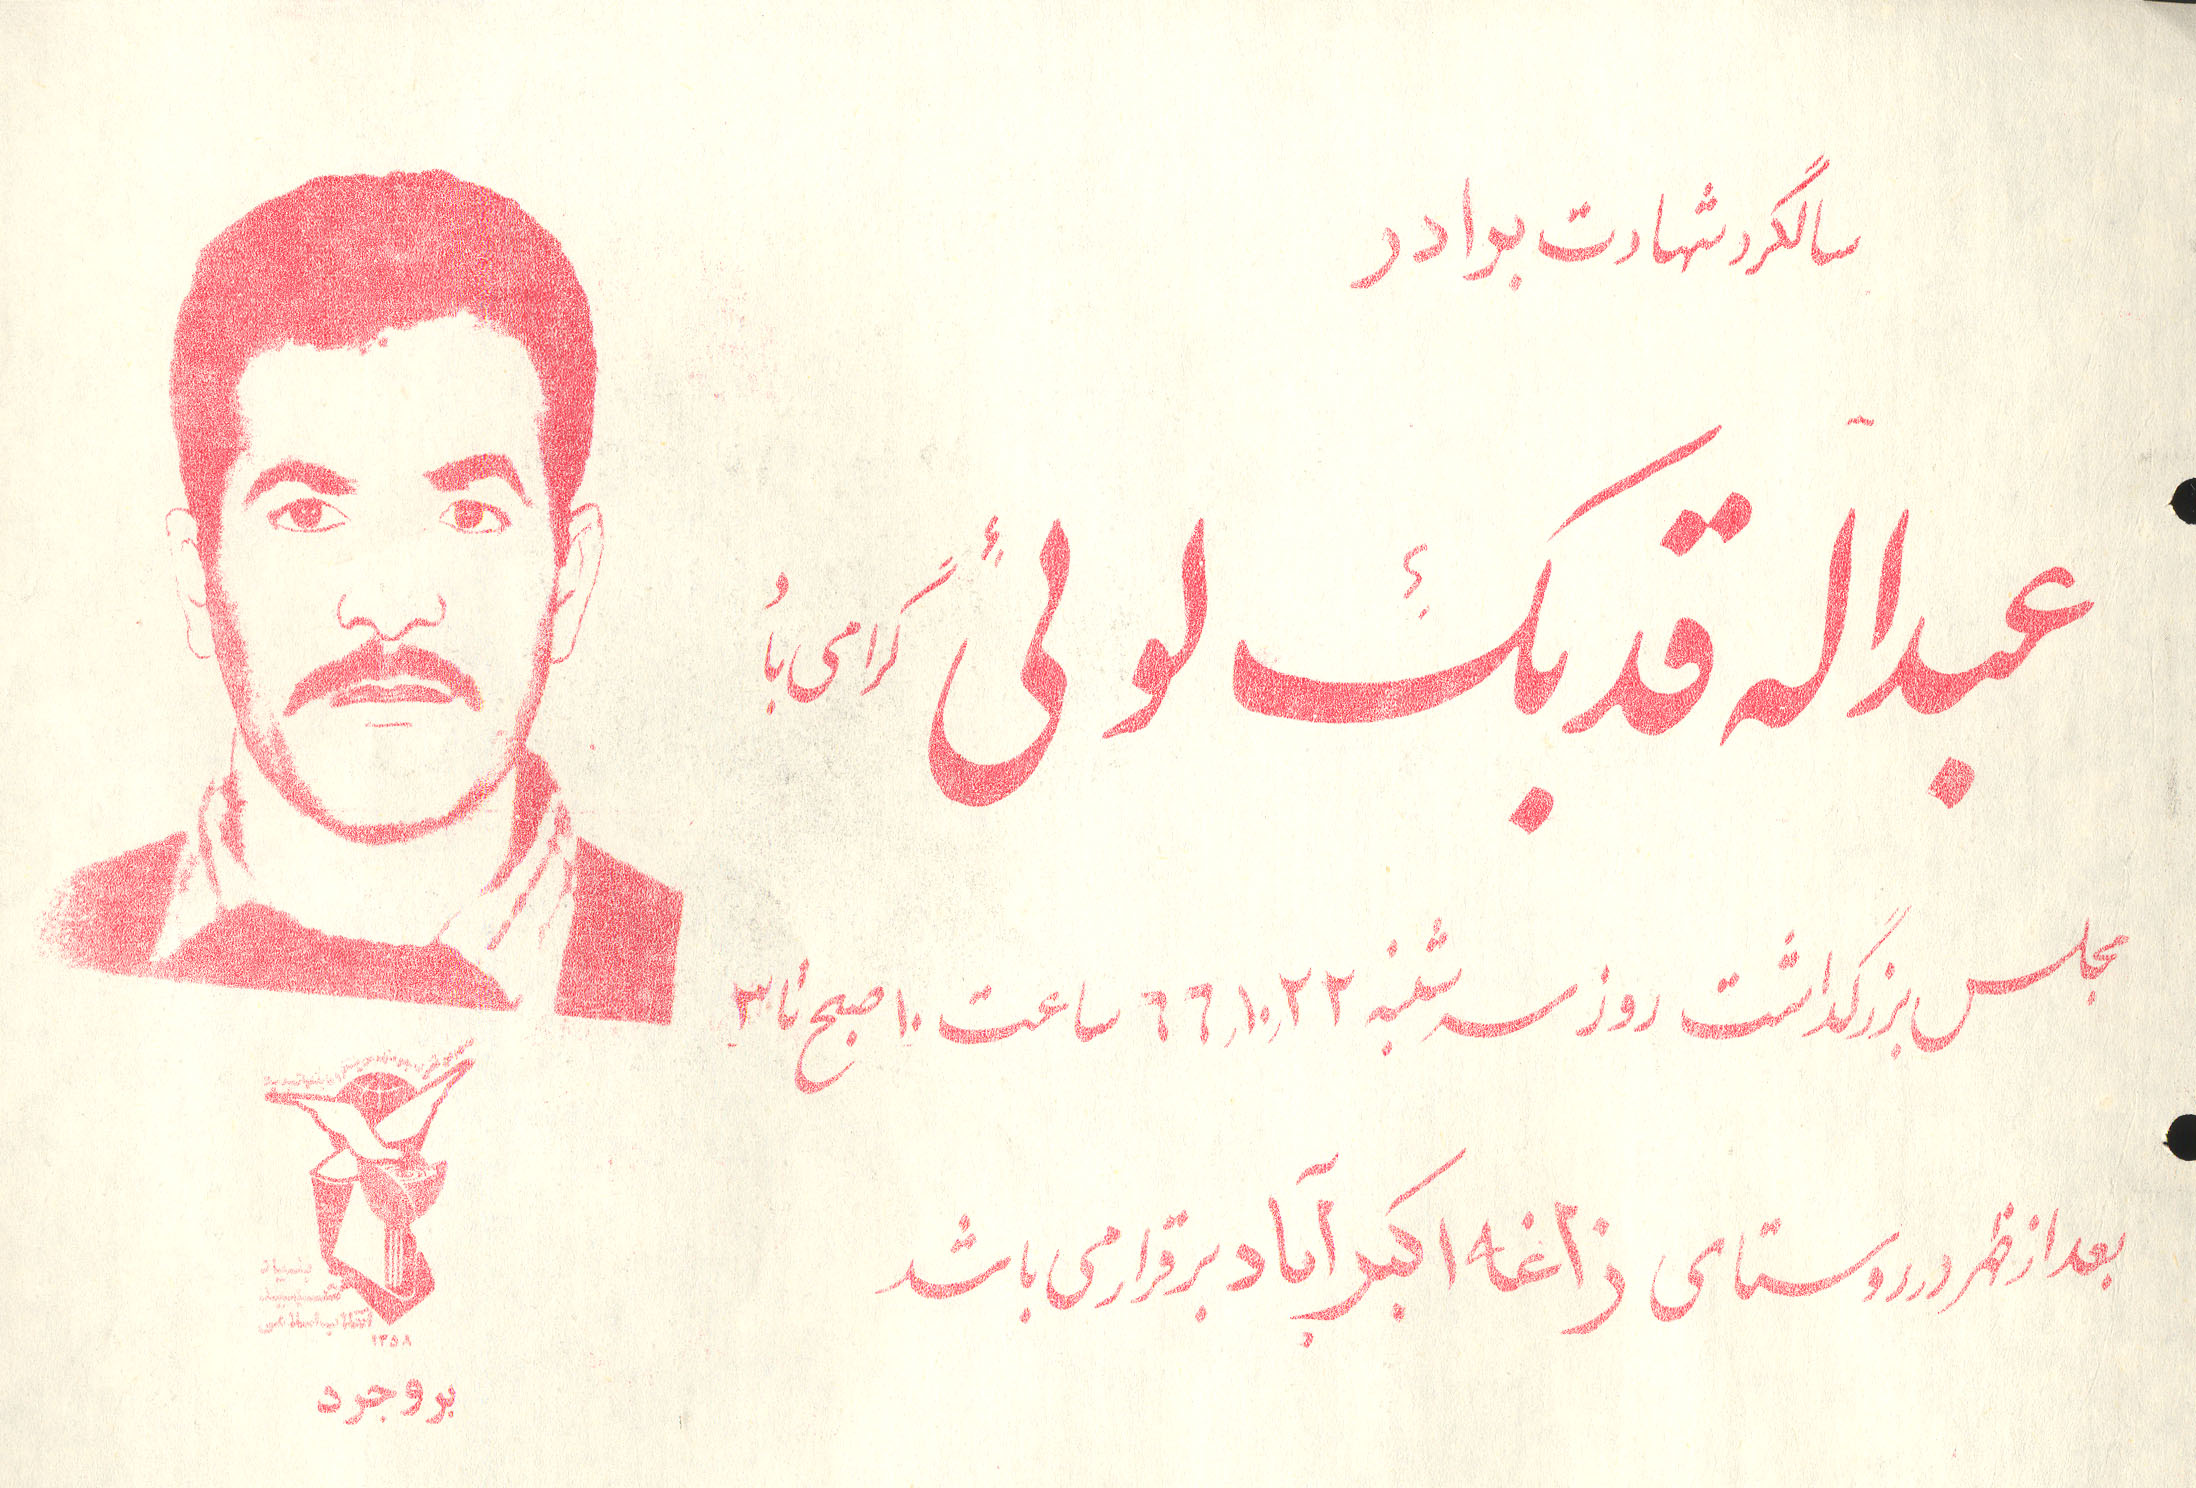 سالگرد شهادت برادر
عبداله قدبک لوئی گرامی باد
مجلس بزرگداشت روز سه شنبه ۶۶٫۱۰٫۲۲ ساعت ۱۰ صبح تا ۳
بعد از ظهر در روستای زاغه اکبر آباد برقرار می باشد
بنیاد
شهید
انقلاب اسلامی
۱۳۵۸
بروجرد